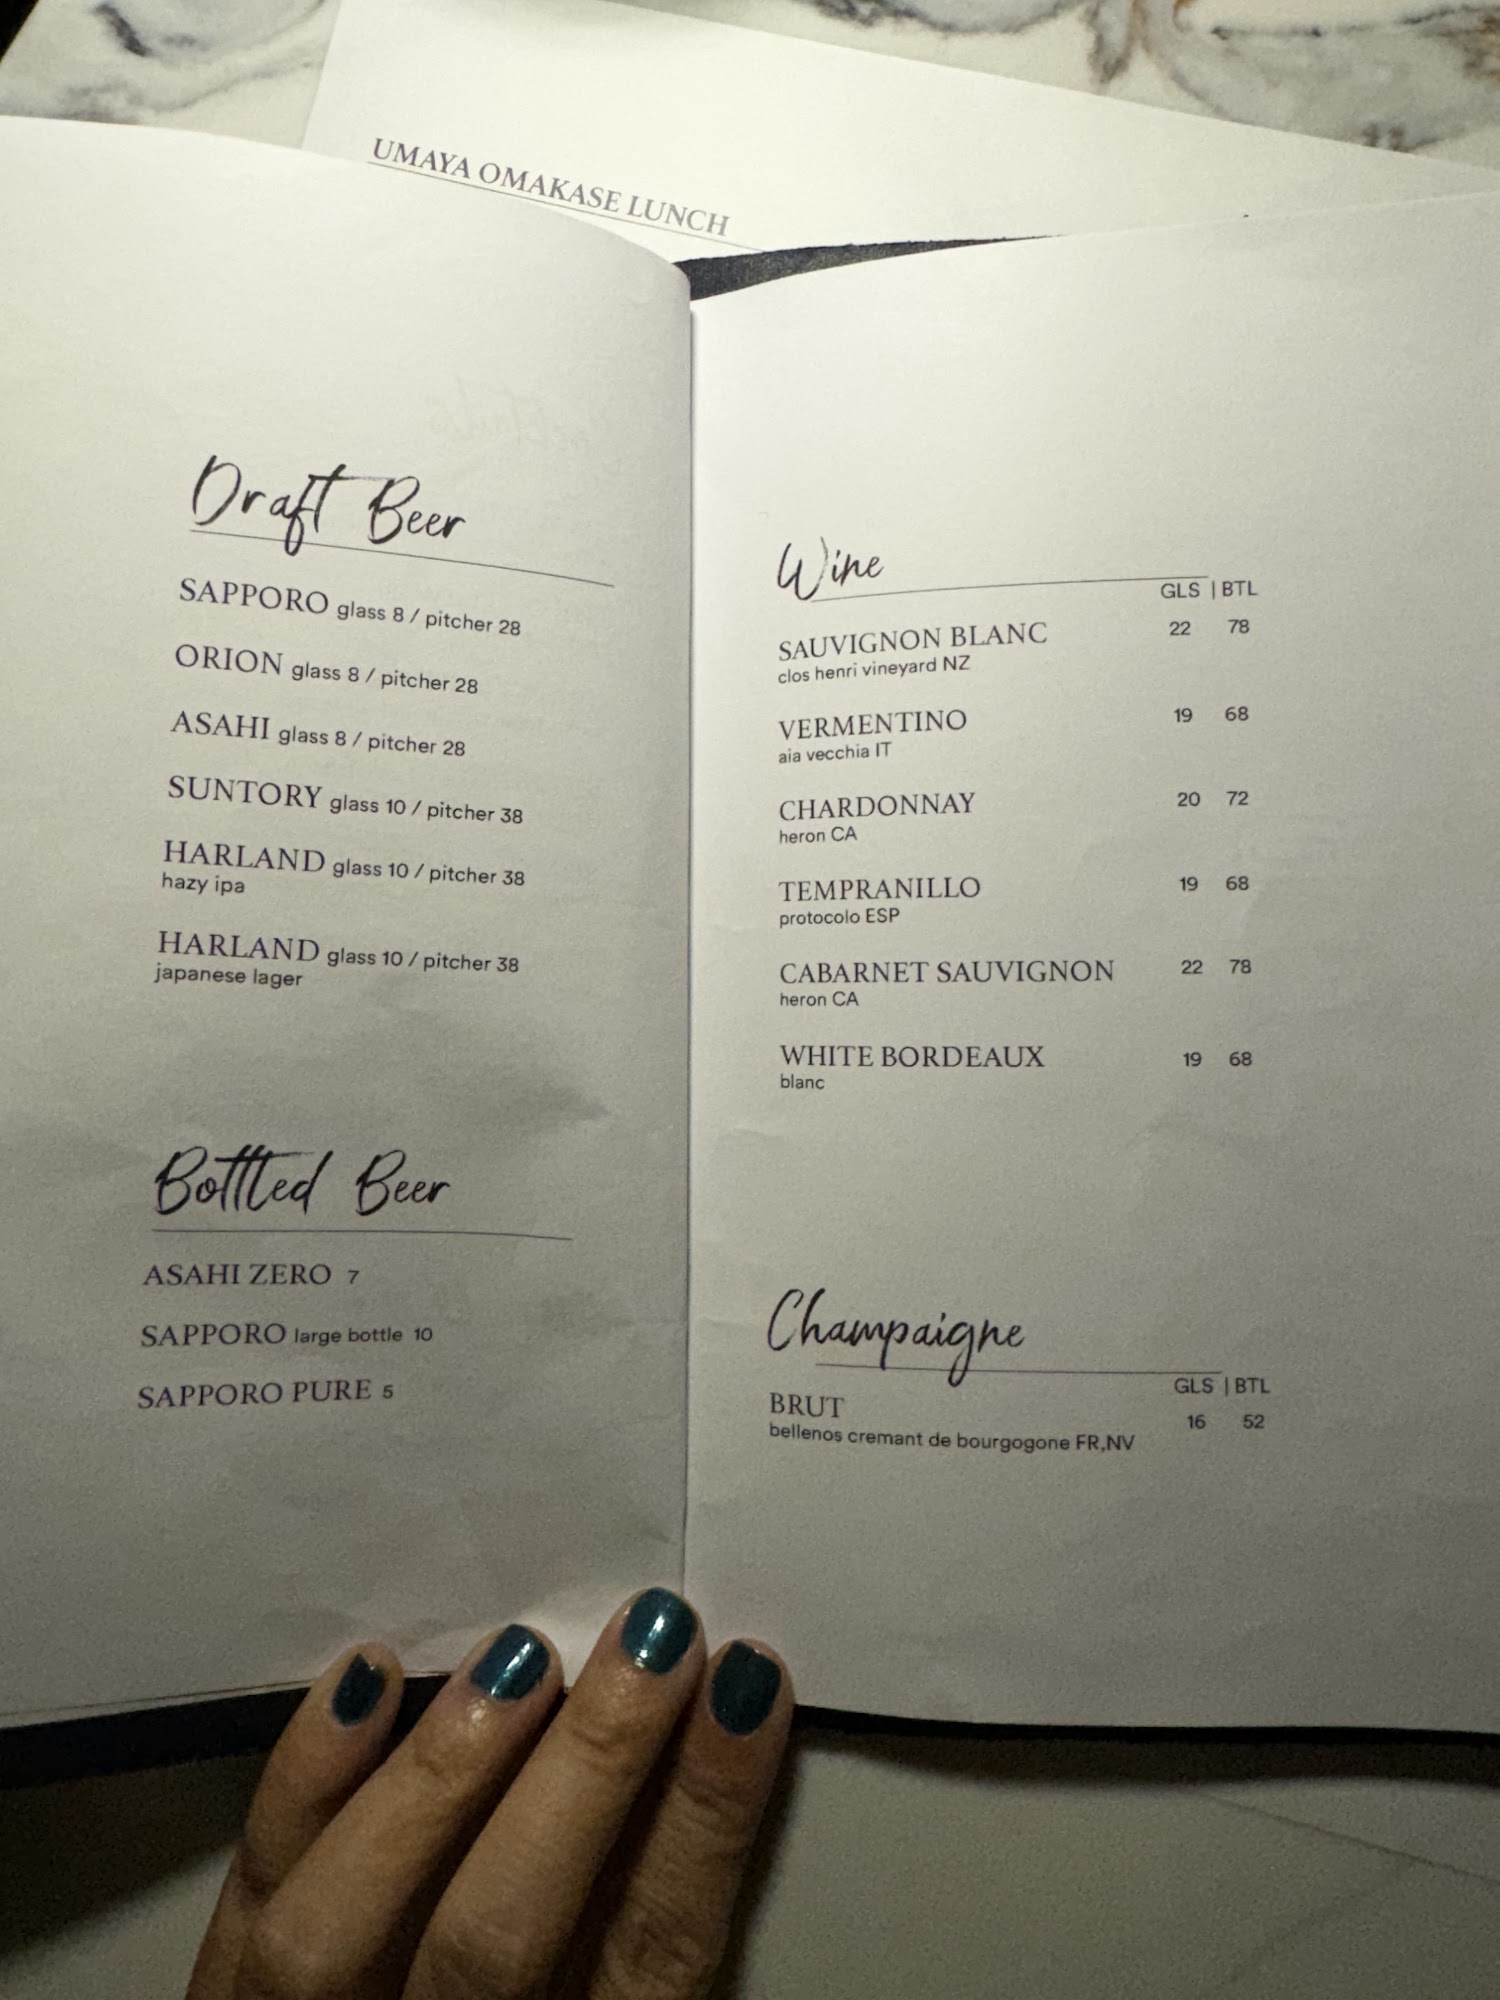 UMAYA OMAKASE LUNCH
Draft Beer
SAPPORO glass 8 / pitcher 28
ORION glass 8 / pitcher 28
ASAHI glass 8 / pitcher 28
SUNTORY glass 10 / pitcher 38
HARLAND glass 10 / pitcher 38
hazy ipa
HARLAND glass 10 / pitcher 38
japanese lager
Bottled Beer
ASAHI ZERO 7
SAPPORO large bottle 10
SAPPORO PURE 5
Wine
GLS | BTL
SAUVIGNON BLANC 22 78
clos henri vineyard NZ
VERMENTINO 19 68
aia vecchia IT
CHARDONNAY 20 72
heron CA
TEMPRANILLO 19 68
protocolo ESP
CABARNET SAUVIGNON 22 78
heron CA
WHITE BORDEAUX 19 68
blanc
Champaigne
GLS | BTL
BRUT 16 52
bellenos cremant de bourgogone FR,NV